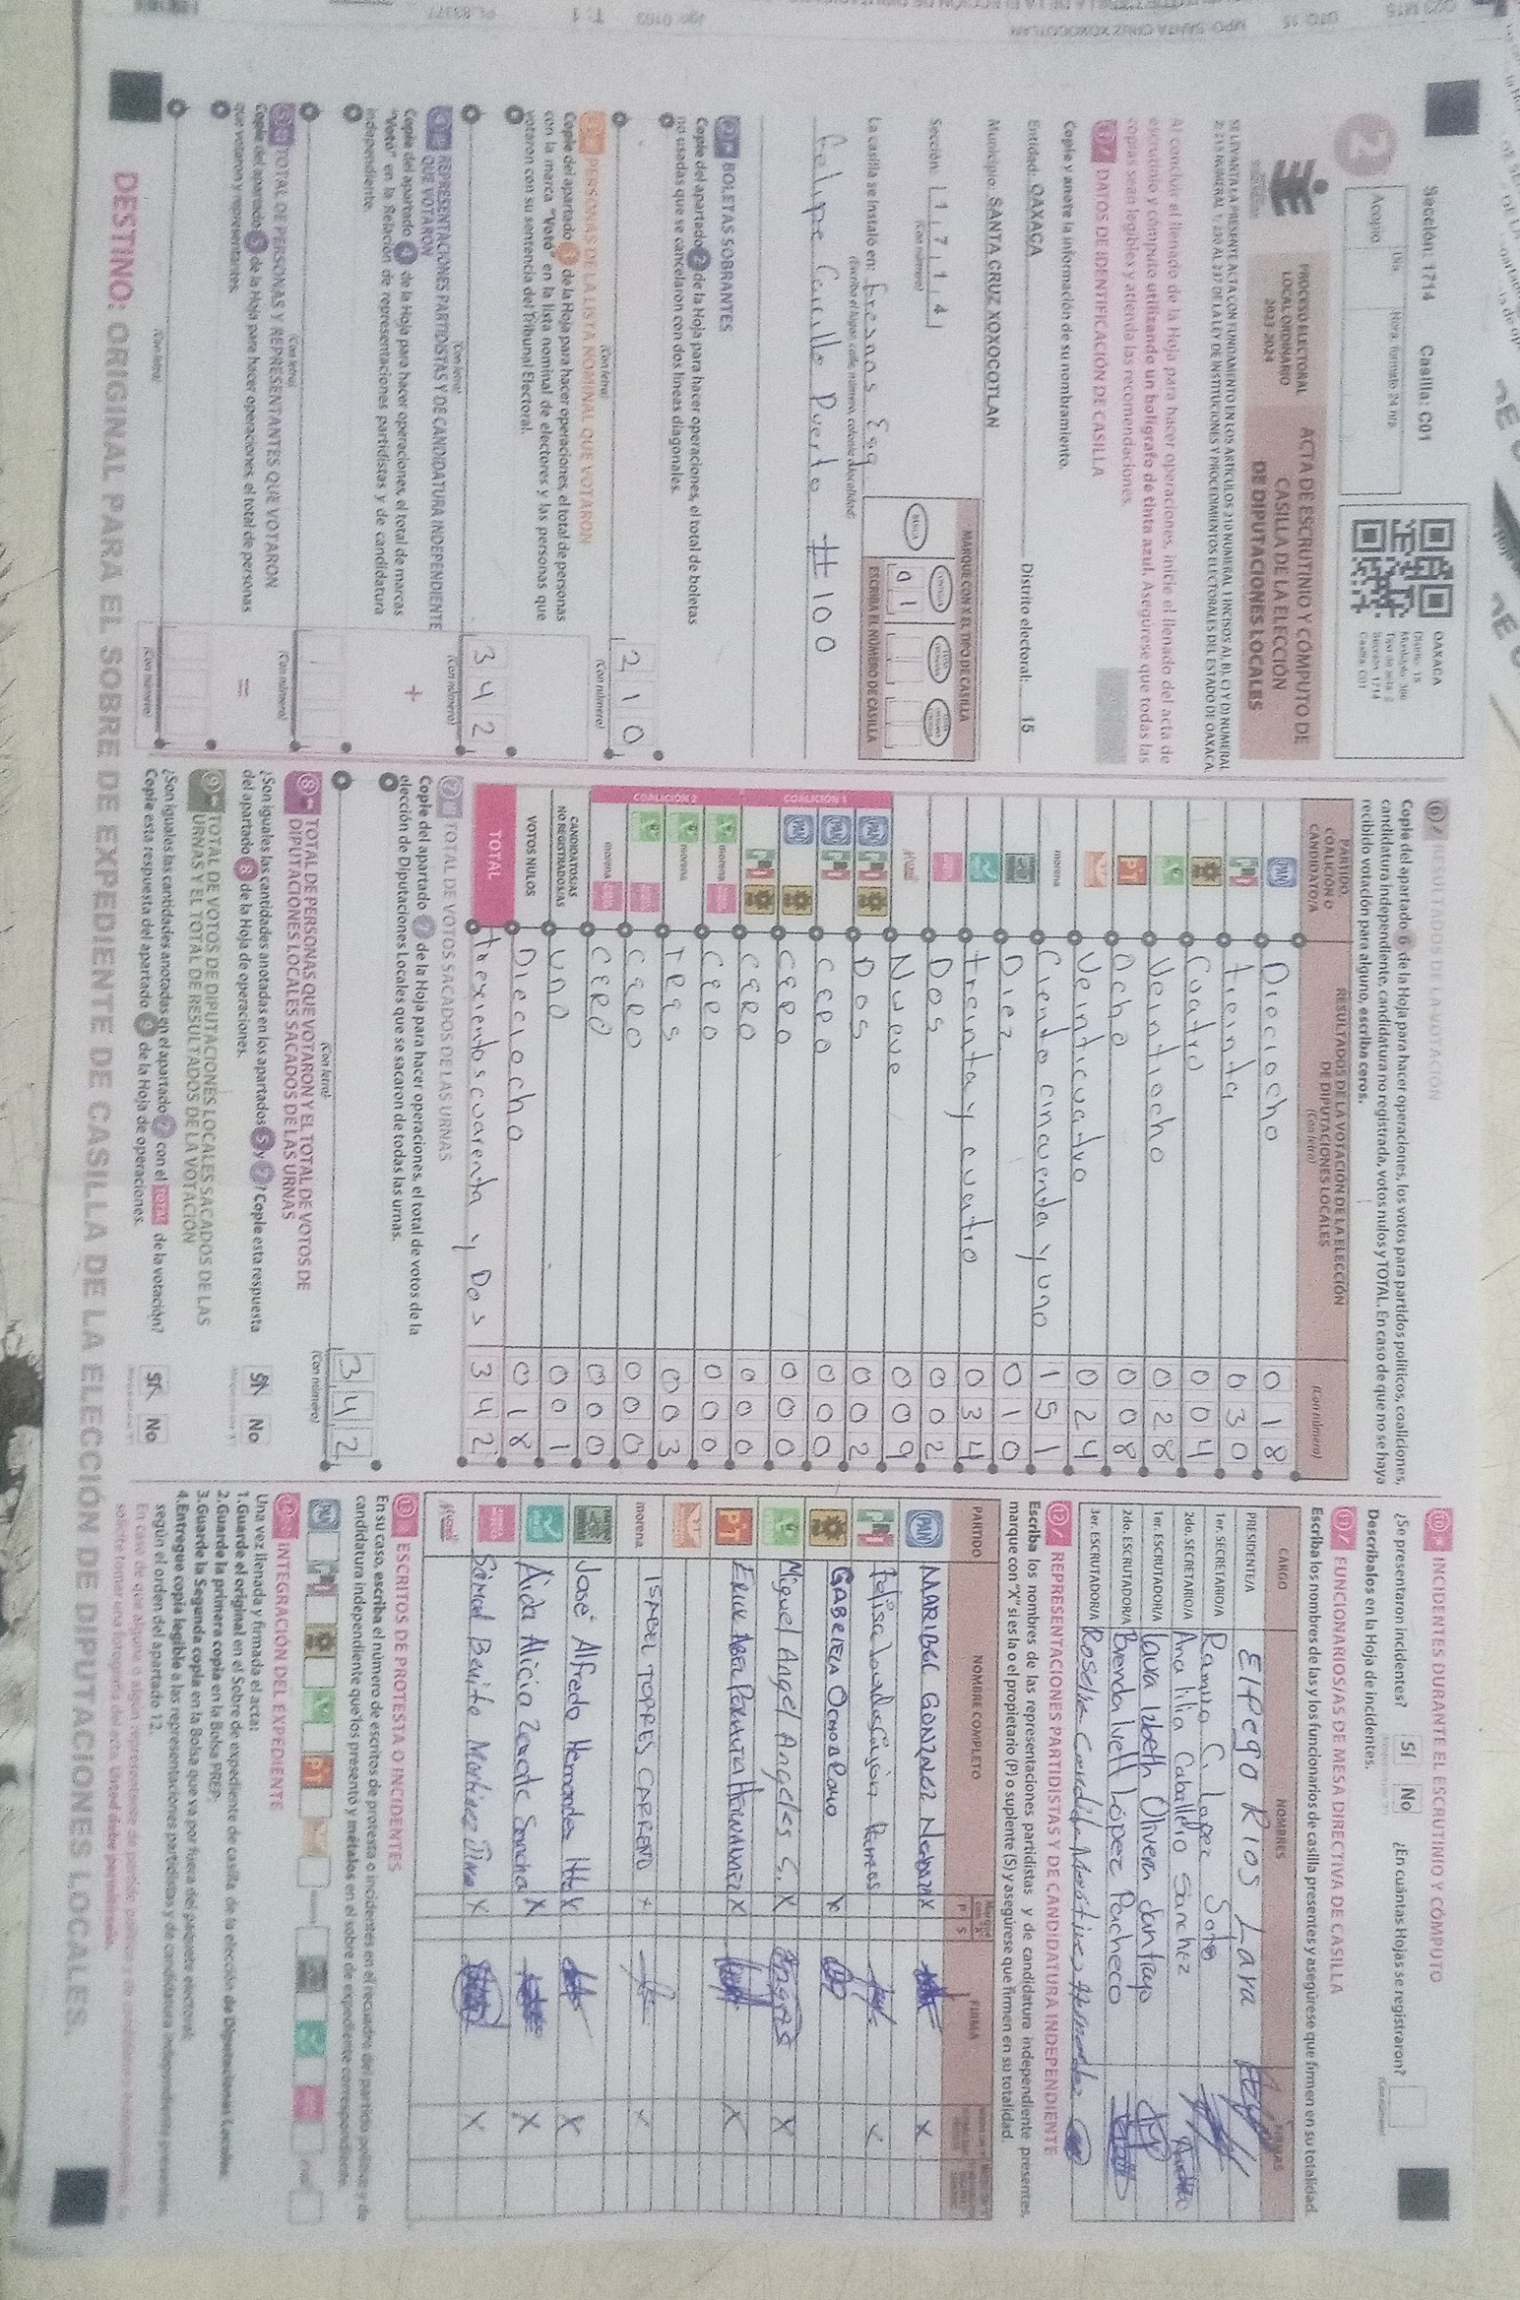 Sección: 1714 Casilla: C01
Día Hora, formato 24 hrs.
Acopio
OAXACA
Distrito: 15
Casilla: C01
2
PROCESO ELECTORAL
LOCAL ORDINARIO
2023-2024
ACTA DE ESCRUTINIO Y CÓMPUTO DE
CASILLA DE LA ELECCIÓN
DE DIPUTACIONES LOCALES
Al concluir el llenado de la Hoja para hacer operaciones, inicie el llenado del acta de
escrutinio y cómputo utilizando un bolígrafo de tinta azul. Asegúrese que todas las
copias sean legibles y atienda las recomendaciones.
1 DATOS DE IDENTIFICACIÓN DE CASILLA
Copie y anote la información de su nombramiento.
Entidad: OAXACA Distrito electoral: 15
Municipio: SANTA CRUZ XOXOCOTLAN
Sección: 1 7 1 4
(Con número)
MARQUE CON X EL TIPO DE CASILLA
ESCRIBA EL NÚMERO DE CASILLA
0 1
La casilla se instaló en: Fresnos Esq
Felipe Carrillo Puerto #100
2 BOLETAS SOBRANTES
Copie del apartado 2 de la Hoja para hacer operaciones, el total de boletas
no usadas que se cancelaron con dos líneas diagonales.
(Con letra) (Con número)
210
3 PERSONAS DE LA LISTA NOMINAL QUE VOTARON
Copie del apartado 3 de la Hoja para hacer operaciones, el total de personas
con la marca "Votó" en la lista nominal de electores y las personas que
votaron con su sentencia del Tribunal Electoral.
(Con letra) (Con número)
342
4 REPRESENTACIONES PARTIDISTAS Y DE CANDIDATURA INDEPENDIENTE
QUE VOTARON
Copie del apartado 4 de la Hoja para hacer operaciones, el total de marcas
"Votó" en la Relación de representaciones partidistas y de candidatura
independiente.
+
(Con letra) (Con número)
5 TOTAL DE PERSONAS Y REPRESENTANTES QUE VOTARON
Copie del apartado 5 de la Hoja para hacer operaciones, el total de personas
que votaron y representantes.
=
(Con letra) (Con número)
6 RESULTADOS DE LA VOTACIÓN
Copie del apartado 6 de la Hoja para hacer operaciones, los votos para partidos políticos, coaliciones,
candidatura independiente, candidatura no registrada, votos nulos y TOTAL. En caso de que no se haya
recibido votación para alguno, escriba ceros.
PARTIDO,
COALICIÓN O
CANDIDATO/A
RESULTADOS DE LA VOTACIÓN DE LA ELECCIÓN
DE DIPUTACIONES LOCALES
(Con letra)
(Con número)
PAN Dieciocho 018
PRI treinta 030
Cuatro 004
Veintiocho 028
PT Ocho 008
Veinticuatro 024
morena Ciento cincuenta y uno 151
Diez 010
treinta y cuatro 034
Dos 002
Nueve 009
COALICIÓN 1
PAN PRI Dos 002
PAN PRI CERO 000
PAN CERO 000
PRI CERO 000
COALICIÓN 2
morena CERO 000
morena TRES 003
CERO 000
morena CERO 000
CANDIDATOS/AS
NO REGISTRADOS/AS UNO 001
VOTOS NULOS Dieciocho 018
TOTAL trexientos cuarenta y Dos 342
7 TOTAL DE VOTOS SACADOS DE LAS URNAS
Copie del apartado 7 de la Hoja para hacer operaciones, el total de votos de la
elección de Diputaciones Locales que se sacaron de todas las urnas.
(Con letra) (Con número)
342
8 TOTAL DE PERSONAS QUE VOTARON Y EL TOTAL DE VOTOS DE
DIPUTACIONES LOCALES SACADOS DE LAS URNAS
¿Son iguales las cantidades anotadas en los apartados 5 y 7? Copie esta respuesta
del apartado 8 de la Hoja de operaciones.
SÍ No
9 TOTAL DE VOTOS DE DIPUTACIONES LOCALES SACADOS DE LAS
URNAS Y EL TOTAL DE RESULTADOS DE LA VOTACIÓN
¿Son iguales las cantidades anotadas en el apartado 7 con el TOTAL de la votación?
Copie esta respuesta del apartado 9 de la Hoja de operaciones.
SÍ No
10 INCIDENTES DURANTE EL ESCRUTINIO Y CÓMPUTO
¿Se presentaron incidentes? SÍ No ¿En cuántas Hojas se registraron?
Descríbalos en la Hoja de incidentes.
11 FUNCIONARIOS/AS DE MESA DIRECTIVA DE CASILLA
Escriba los nombres de las y los funcionarios de casilla presentes y asegúrese que firmen en su totalidad.
CARGO NOMBRES FIRMAS
PRESIDENTE/A Elfego Rios Lara
1er. SECRETARIO/A Ramiro C. Lopez Soto
2do. SECRETARIO/A Ana lilia Caballero Sanchez
1er. ESCRUTADOR/A Laura Izbeth Olivera
2do. ESCRUTADOR/A Brenda Ivett López Pacheco
3er. ESCRUTADOR/A Roselia Candida Martinez Hernandez
12 REPRESENTACIONES PARTIDISTAS Y DE CANDIDATURA INDEPENDIENTE
Escriba los nombres de las representaciones partidistas y de candidatura independiente presentes,
marque con "X" si es la o el propietario (P) o suplente (S) y asegúrese que firmen en su totalidad.
PARTIDO NOMBRE COMPLETO P S FIRMA
PAN MARIBEL GONZALEZ X X
PRI X
GABRIELA X
Miguel Angel Angeles S. X X
PT ERICK ABEL HERNANDEZ X X
morena ISABEL TORRES CARREÑO X X
José Alfredo Hernandez X X
Aida Alicia Zarate Sanchez X X
Benito Martinez X X
13 ESCRITOS DE PROTESTA O INCIDENTES
En su caso, escriba el número de escritos de protesta o incidentes en el recuadro del partido político y de
candidatura independiente que los presentó y métalos en el sobre de expediente correspondiente.
PAN PRI PT
14 INTEGRACIÓN DEL EXPEDIENTE
Una vez llenada y firmada el acta:
1.Guarde el original en el Sobre de expediente de casilla de la elección de Diputaciones Locales.
2.Guarde la primera copia en la Bolsa PREP.
3.Guarde la Segunda copia en la Bolsa que va por fuera del paquete electoral.
4.Entregue copia legible a las representaciones partidistas y de candidatura independiente presentes,
según el orden del apartado 12.
DESTINO: ORIGINAL PARA EL SOBRE DE EXPEDIENTE DE CASILLA DE LA ELECCIÓN DE DIPUTACIONES LOCALES.